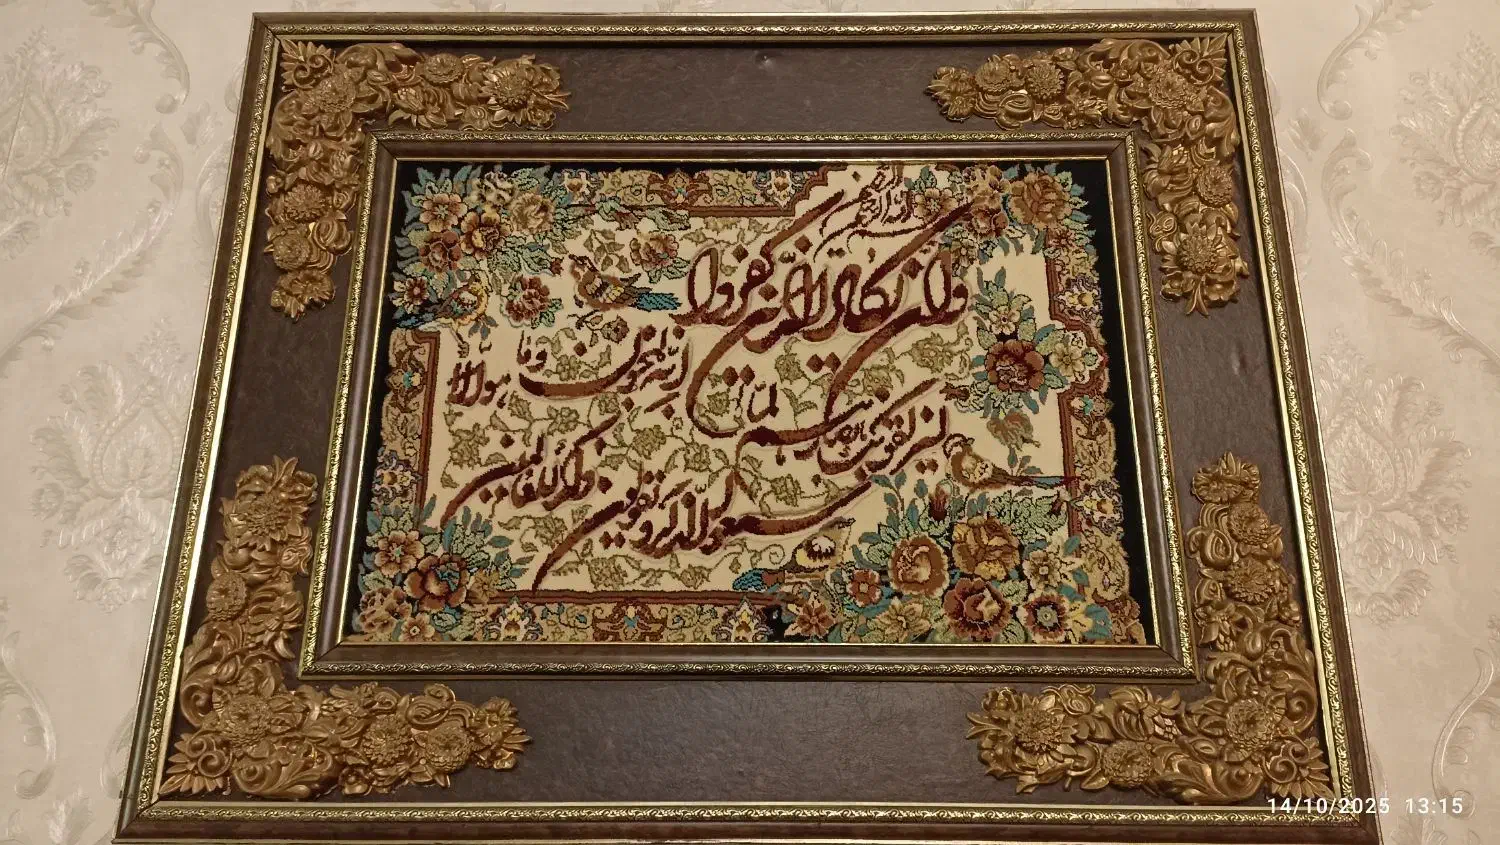 بسم الله الرحمن الرحیم
وان یکاد الذین کفروا
لیزلقونک بابصارهم لما
سمعوا الذکر و یقولون
انه لمجنون وما
هو الا
ذکر للعالمین
14/10/2025 13:15